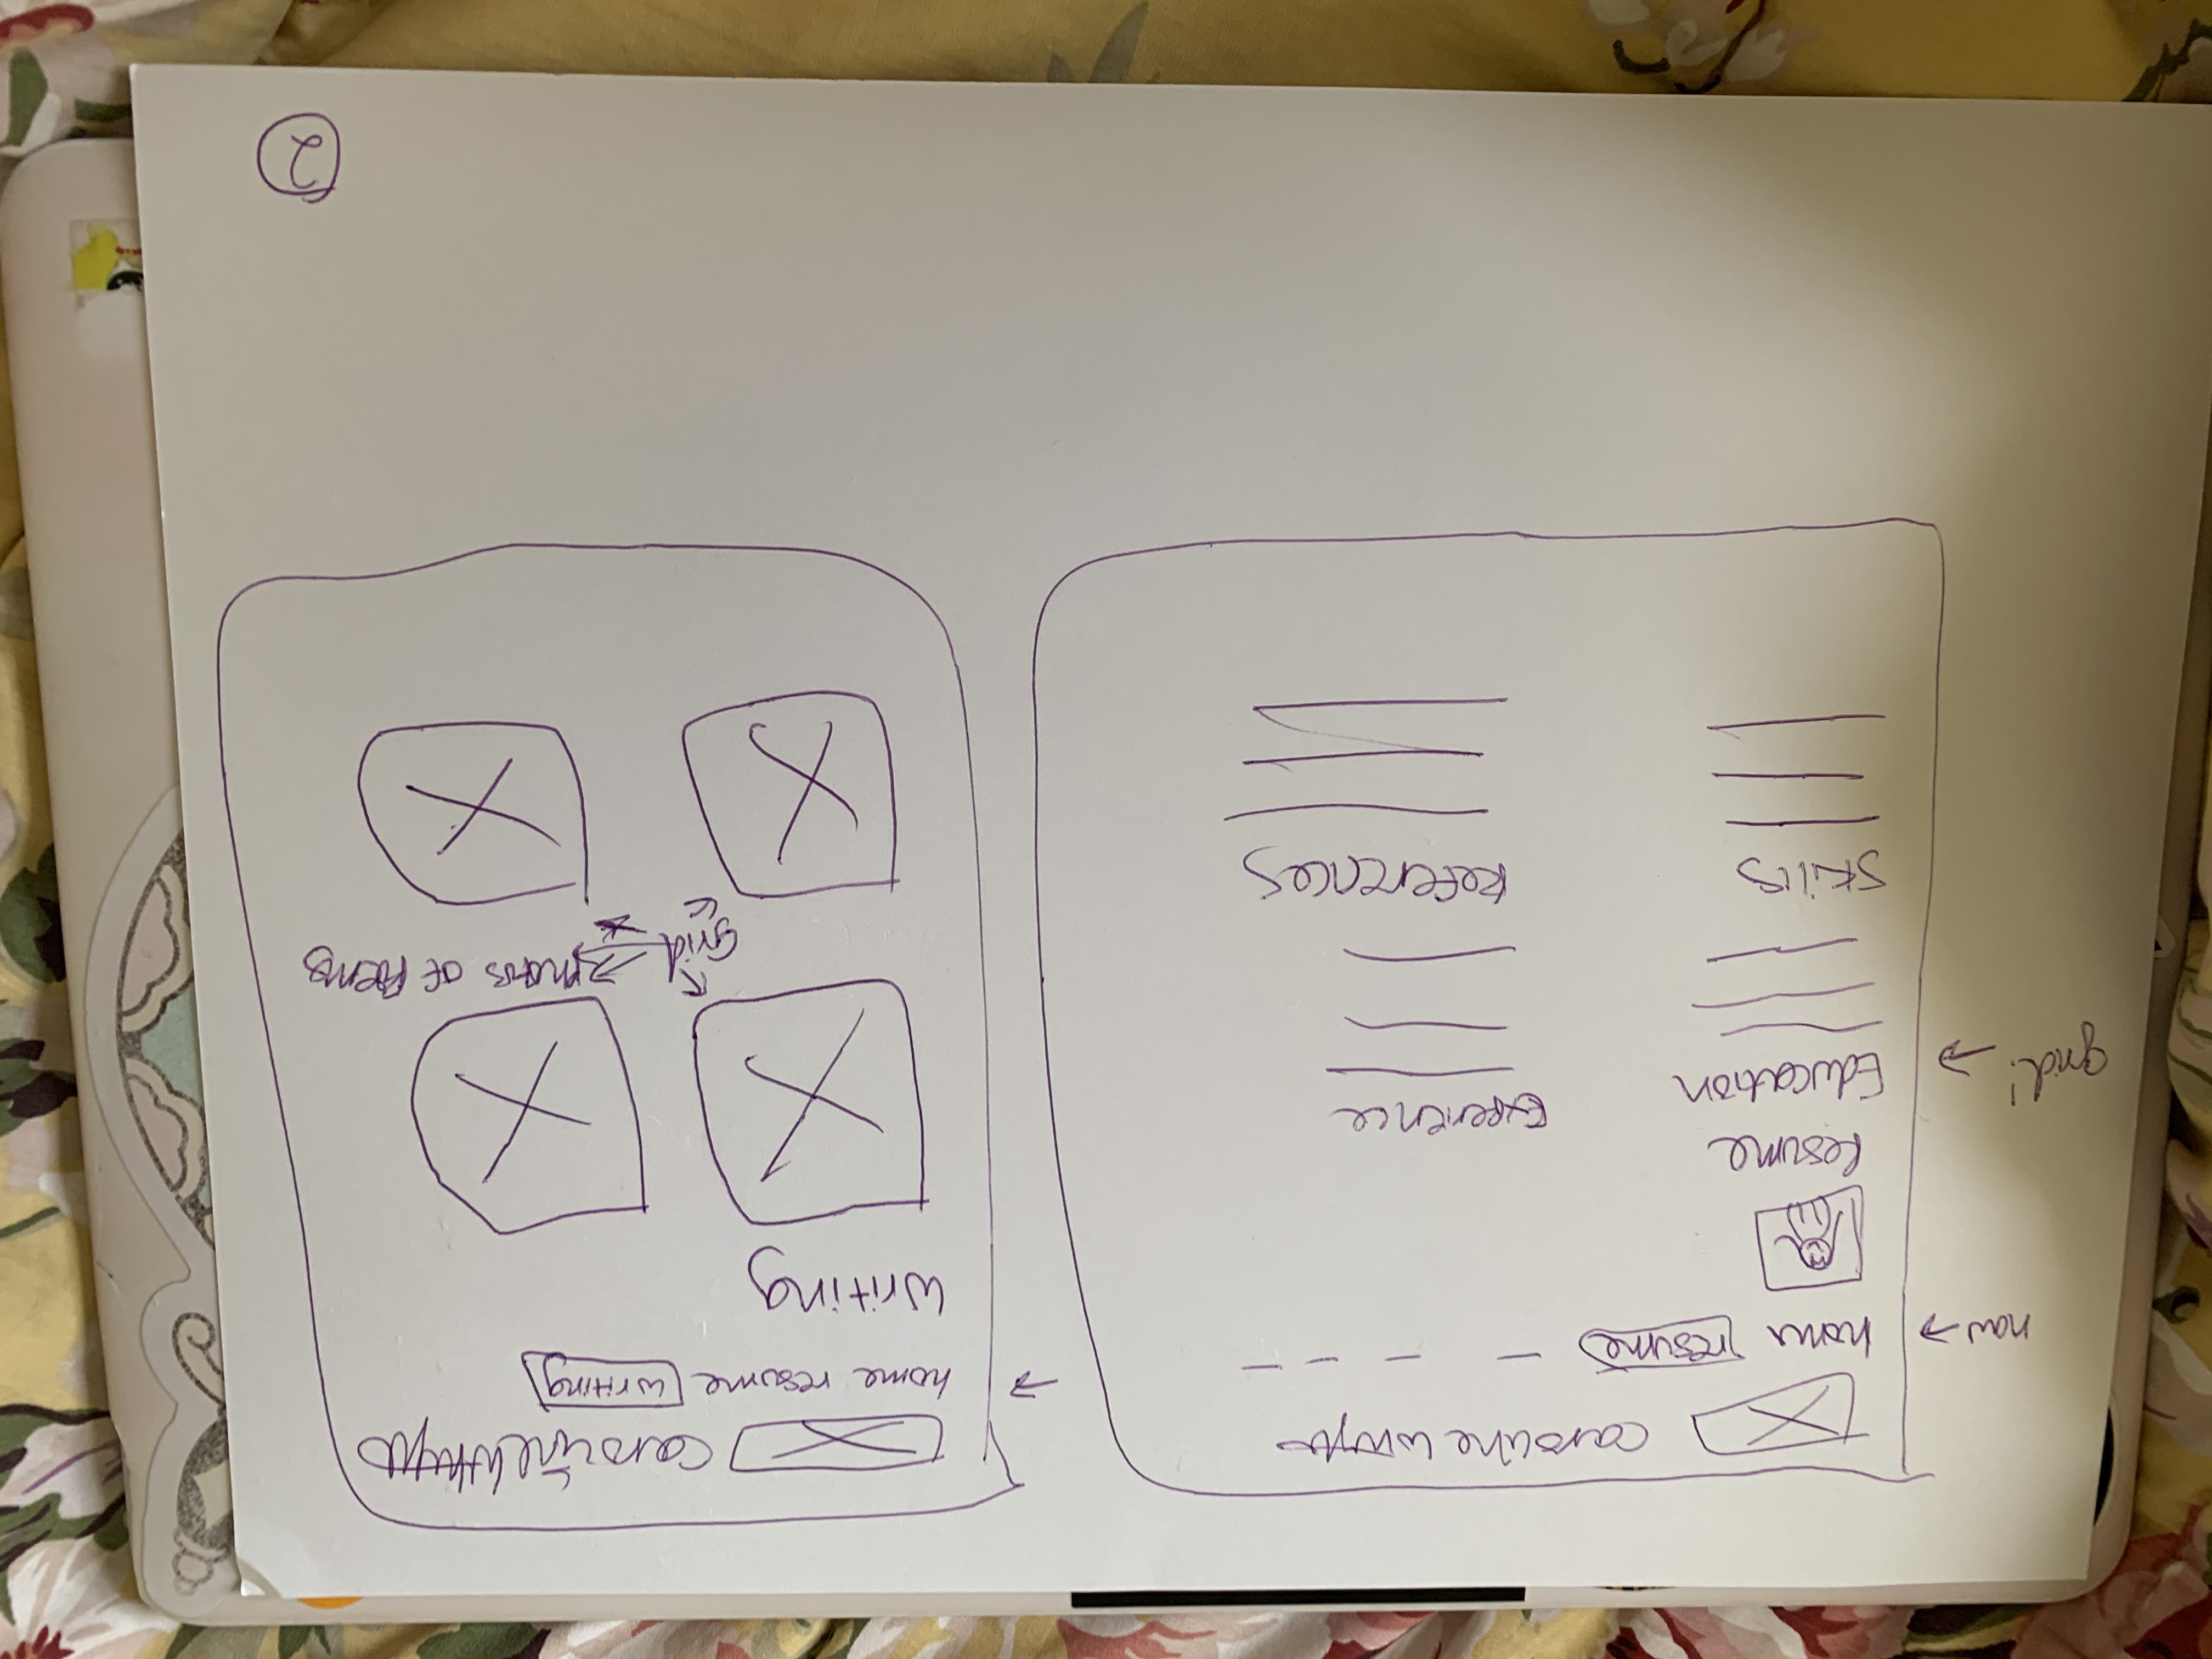 caroline
nav → home resume
Resume
grid! →
Education
Experience
Skills
References
→
caroline
home resume writing
Writing
Grid → photos of poems
2